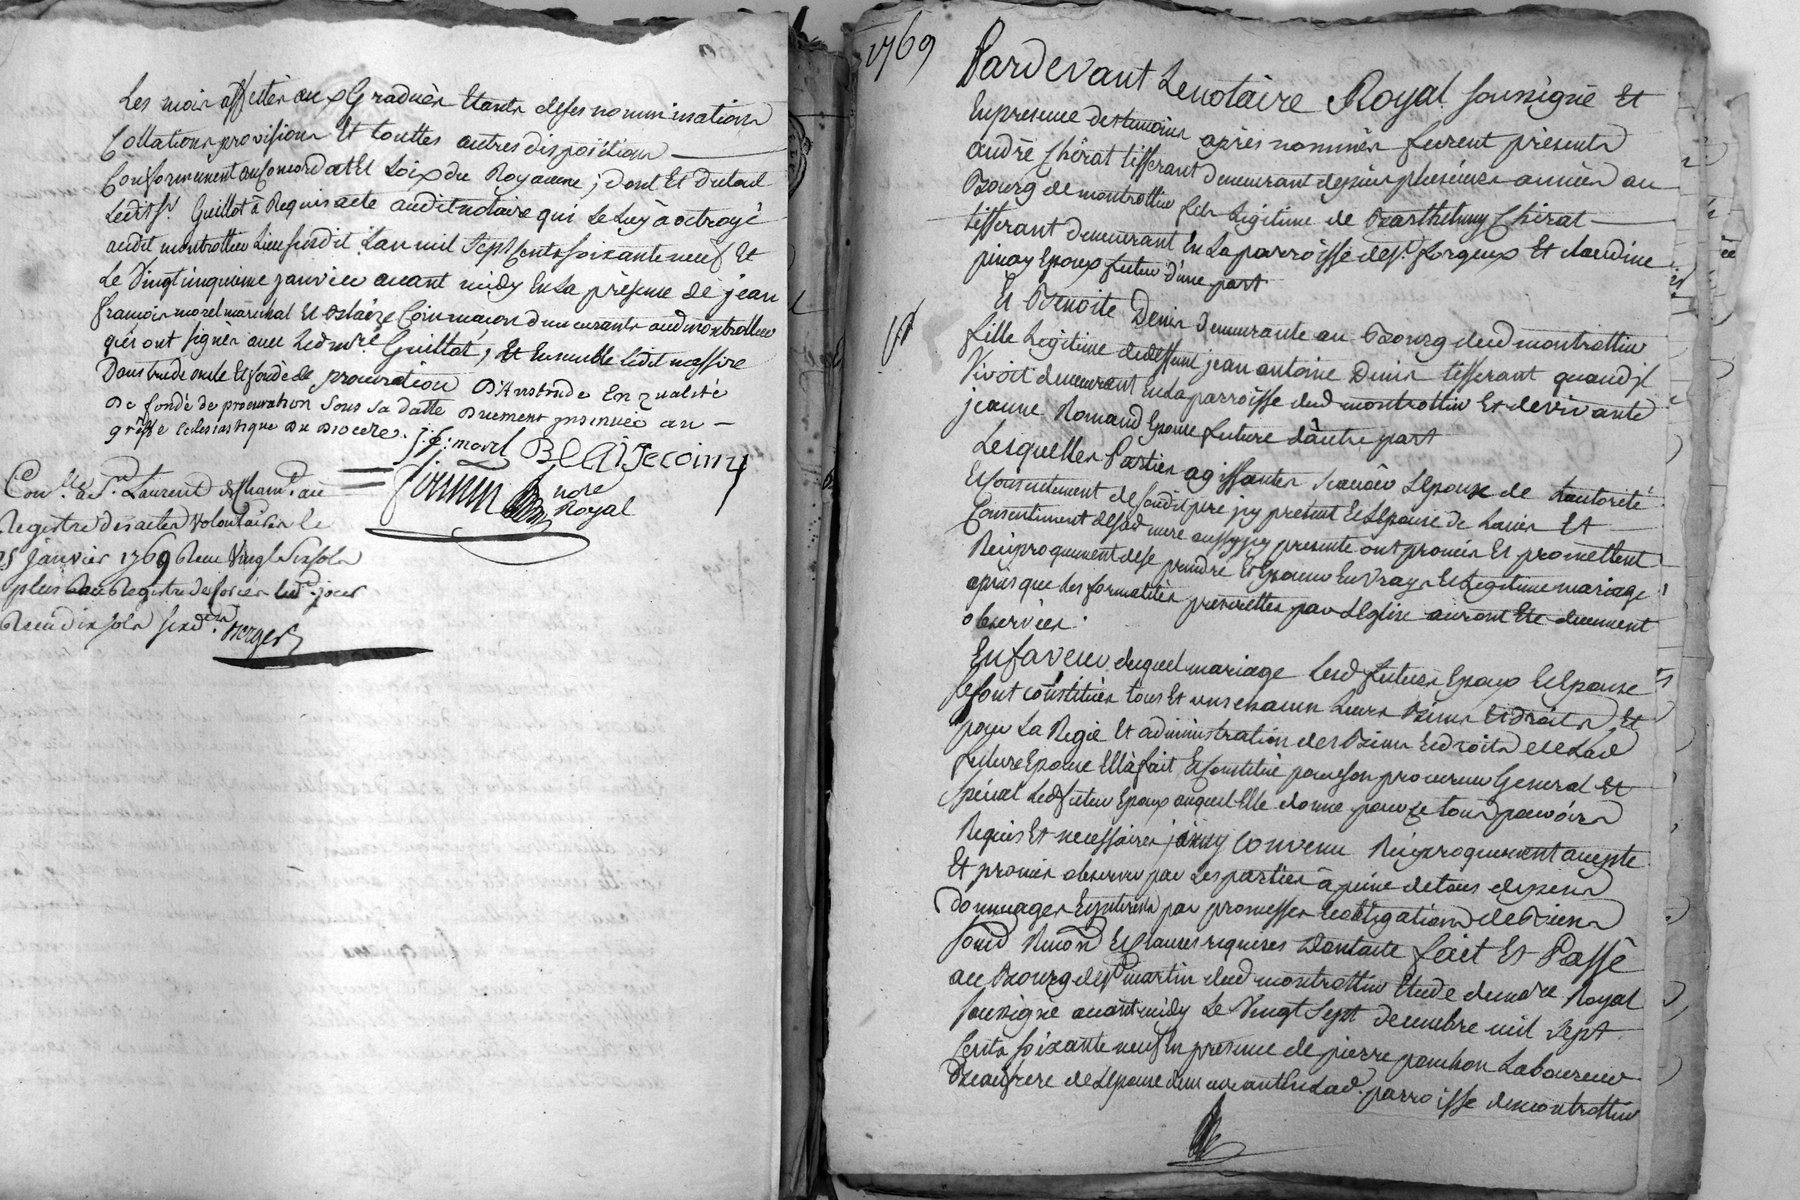 Les mois affectés aux Gradués Etants deses nommination
Collations provisions Et touttes autres dispositions
Conformement au Concordat Et Loix du Royaume ; dont Et dutout
Ledit Sr. Guillot à Requis acte audit notaire qui Le Luy à octroyé
audit montrottier Lieu susdit L'an mil Sept Cents soixante neuf Et
Le Vingtcinquieme janvier avant midy En La présence de jean
francois morel marechal Et Demeurants audit montrottier
qui ont signés avec Led mre Guillot, Et Ensemble ledit messire
procuration D'Austrude En qualité
De fondé de procuration sous sa datte Duement insinuée au
greffe Eclesiastique Du Diocese. j. f. morel
no.re
Royal
Con.lé à St. Laurent de Cham.t au
Registre des actes Volontaires le
janvier 1769 Reçu Vingt six sols
plus au Registre led. jour
Reçu dix sols Berger
1769
Pardevant Le notaire Royal soussigné Et
En presence des temoins après nommés furent présents
andré Chérat tisserant demeurant depuis plusieurs années au
Bourg de montrottier fils Légitime de Barthelemy Chérat
tisserant demeurant En La parroisse de St. forgeux Et claudine
pinay Epoux futur d'une part
Et Benoite Denis demeurante au Bourg dud montrottier
fille Légitime de deffunt jean antoine Denis tisserant quand il
Vivoit demeurant En La parroisse dud montrottier Et de vivante
jeanne Romand Epouse future d'autre part
Lesquelles Parties agissantes sçavoir L'epoux de L'autorité
Et Consentement de sondit père icy present Et L'epouse de Lavis Et
Consentement de sad mere aussy icy presente ont promis Et promettent
Reciproquement de se prendre Et Epouser En Vray Et Legitime mariage
apres que les formalités prescrittes par L'Eglise auront Eté duement
observées.
En faveur duquel mariage Lesd futurs Epoux Et Epouse
se sont constitués tous Et uns chacun Leurs Biens Et droits, Et
pour La Regie Et administration des Biens Et droits de Lad
future Epouse Elle à fait Et Constitué pour son procureur General Et
Spécial Led futur Epoux auquel Elle donne pour ce tous pouvoirs
Requis Et necessaires ; ainsy Convenu Reciproquement accepté
Et promis observer par Les parties à peine de tous depens
Dommages Et interets par promesses Et obligations de Biens
soumd Renond Et clauses requises Dont acte fait Et Passé
au Bourg de St martin dud montrottier Etude du no.re Royal
soussigné avant midy Le Vingt Sept decembre mil Sept
Cents soixante neuf En presence de pierre ponchon Laboureur
Beaufrere de L'epouse demeurant En Lad. parroisse de montrottier